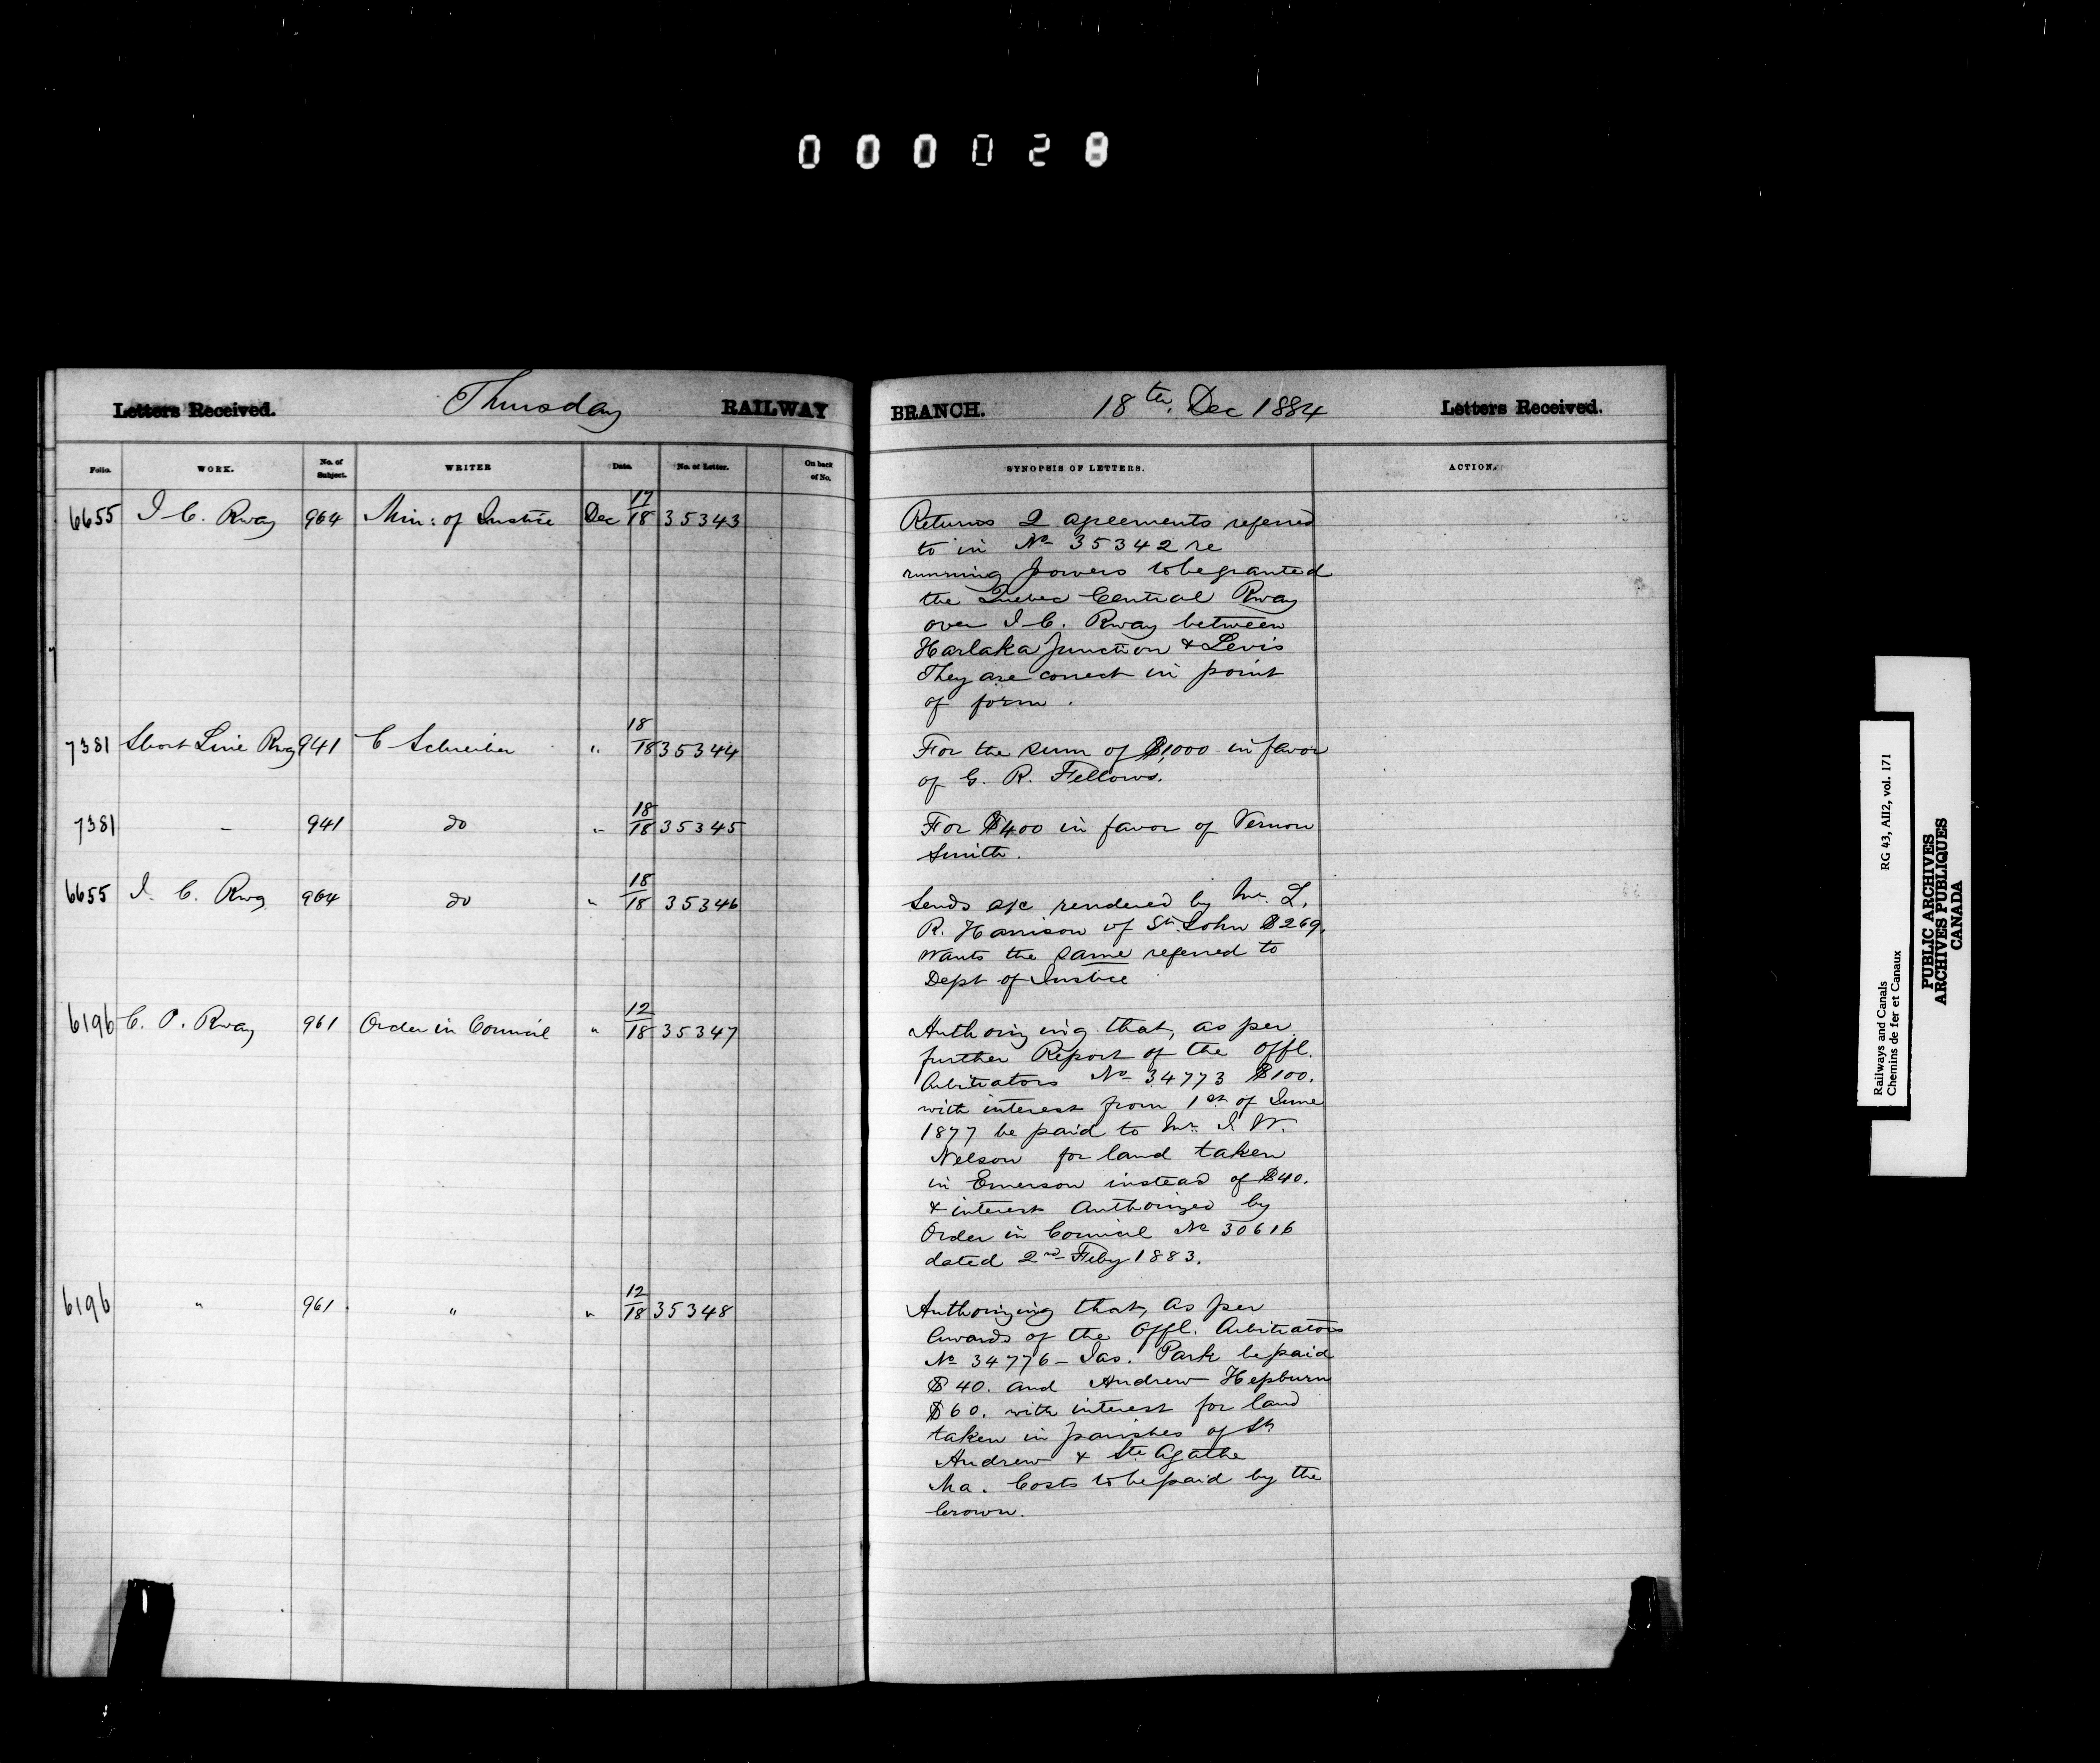 000028
Letters Received. Thursday RAILWAY
Folio. WORK. No. of Subject. WRITER Date. No. of Letter. On back of No.
6655 I C. Rway 964 Min: of Justice Dec 17/18 35343
7381 Short Line Rwy 941 C Schreiber " 18/18 35344
7381 – 941 do " 18/18 35345
6655 I. C. Rwy 964 do " 18/18 35346
6196 C. P. Rway 961 Order in Council " 12/18 35347
6196 " 961 " " 12/18 35348
BRANCH. 18th. Dec 1884 Letters Received.
SYNOPSIS OF LETTERS. ACTION.
Returns 2 agreements referred
to in No 35342 re
running powers to be granted
the Quebec Central Rway
over I C. Rway between
Harlaka Junction & Levis
They are correct in point
of form.
For the sum of $1,000 in favor
of G. R. Fellows.
For $400 in favor of Vernon
Smith.
Sends a/c rendered by Mr. L.
R. Harrison of St. John $269.
Wants the same referred to
Dept of Justice
Authorizing that, as per
further Report of the Offl.
Arbitrators No 34773 $100.
with interest from 1st of June
1877 be paid to Mr. J. W.
Nelson for land taken
in Emerson instead of $40.
& interest Authorized by
Order in Council No 30616
dated 2nd Feby 1883.
Authorizing that, as per
Awards of the Offl. Arbitrators
No 34776 – Jas. Park be paid
$40. and Andrew Hepburn
$60. with interest for land
taken in parishes of St.
Andrew & Ste Agathe
Ma. Costs to be paid by the
Crown.
Railways and Canals RG 43, AII2, vol. 171
Chemins de fer et Canaux
PUBLIC ARCHIVES
ARCHIVES PUBLIQUES
CANADA